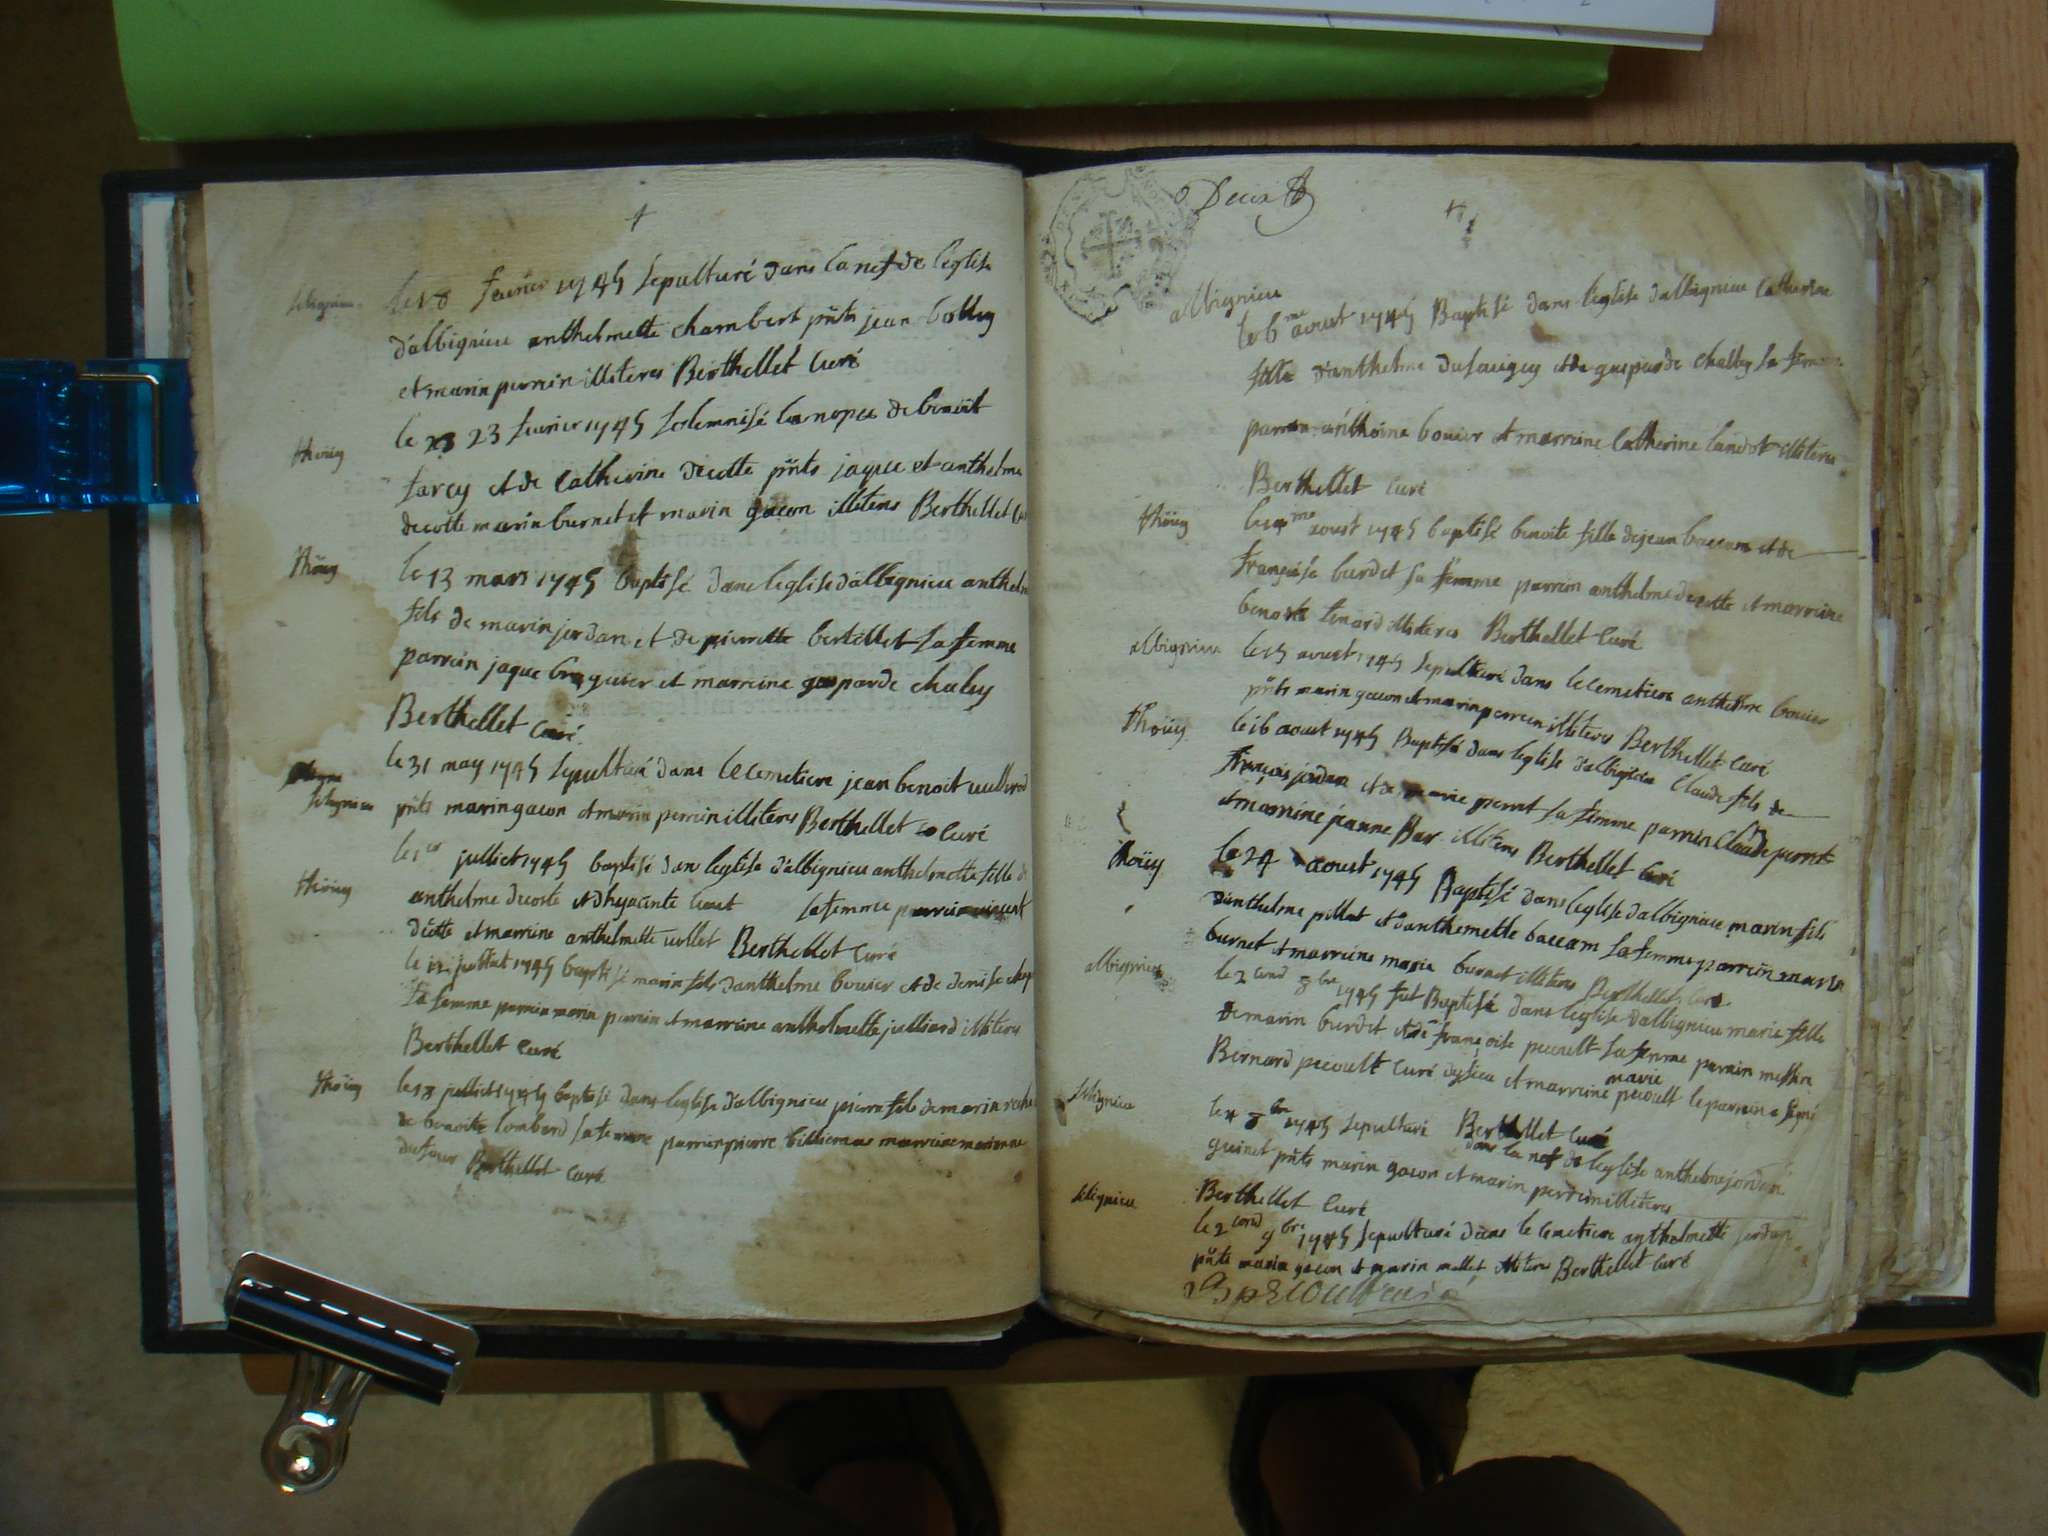 le 18 fevrier 1745 sepulturé dans la nef de leglise
d'albignieu anthelmette chambert pñts jean bolley
et marin perrin illiteres Berthellet Curé
thoüy
le 23 fevrier 1745 solemnisé les nopces de benoit
tarcy et de Catherine decotte pñts jaque et anthelme
decotte marin burnet et marin gacon illiteres Berthellet
thoüy
le 13 mars 1745 baptisé dans leglise d'albignieu anthelm
fils de marin jordan et de pierrette bertillet sa femme
parrein jaque et marreine gasparde chaley
Berthellet Curé
le 31 may 1745 sepulturé dans le cemetiere jean benoit
Setignieu
pñts marin gacon et marin perrin illiteres Berthellet Curé
le 1er julliet 1745 baptisé dan leglise d'albignieu anthelmette fille
thoüy
anthelme decotte et dhyacinte sa femme parrin vincent
decotte et marreine anthelmette Berthellet Curé
le 12 julliet 1745 baptisé marin fils danthelme bouier et de denise
sa femme parrin marin perrin et marreine anthelmette julliard illiteres
Berthellet Curé
thoüy
le 18 julliet 1745 baptisé dans leglise d'albignieu pierre fils de marin
de benoite lombard sa femme parrin pierre billiemas marreine
dufour Berthellet Curé
Deux
albignieu
le 6me aoust 1745 Baptisé dans leglise d'albignieu Catherine
fille d'anthelme dusaugey et de gasparde challey sa femme
parrein anthoine bouier et marreine Catherine illiteres
Berthellet Curé
thoüy
aoust 1745 baptisé benoite fille de jean baccam et de
françoise burdet sa femme parrein anthelme decotte et marreine
benoite tenard illiteres Berthellet Curé
albignieu
le 15 aoust 1745 sepulturé dans le cemetiere anthelme bouier
pñts marin gacon et marin perrin illiteres Berthellet Curé
thoüy
le 16 aoust 1745 Baptisé dans leglise d'albignieu Claude fils de
françois jordan et de marie perret sa femme parrein Claude perret
et marreine jeanne Bar illiteres Berthellet Curé
thoüy
le 24 aoust 1745 Baptisé dans leglise d'albignieu marin fils
d'anthelme pillat et d'anthemette baccam sa femme parrein marin
burnet et marreine marie burnet illiteres Berthellet Curé
albignieu
le 2cond 8bre 1745 fut Baptisé dans leglise d'albignieu marie fille
de marin burdet et de françoise pecoult sa femme parrein messire
Bernard pecoult Curé et marreine marie pecoult le parrein a signé
Berthellet Curé
Setignieu
8bre 1745 sepulturé dans la nef de leglise anthelme jordan
guinet pñts marin gacon et marin perrin illiteres
Berthellet Curé
Setignieu
le 2cond 9bre 1745 sepulturé dans le cemetiere anthelmette jordan
pñts marin gacon et marin mallet illiteres Berthellet Curé